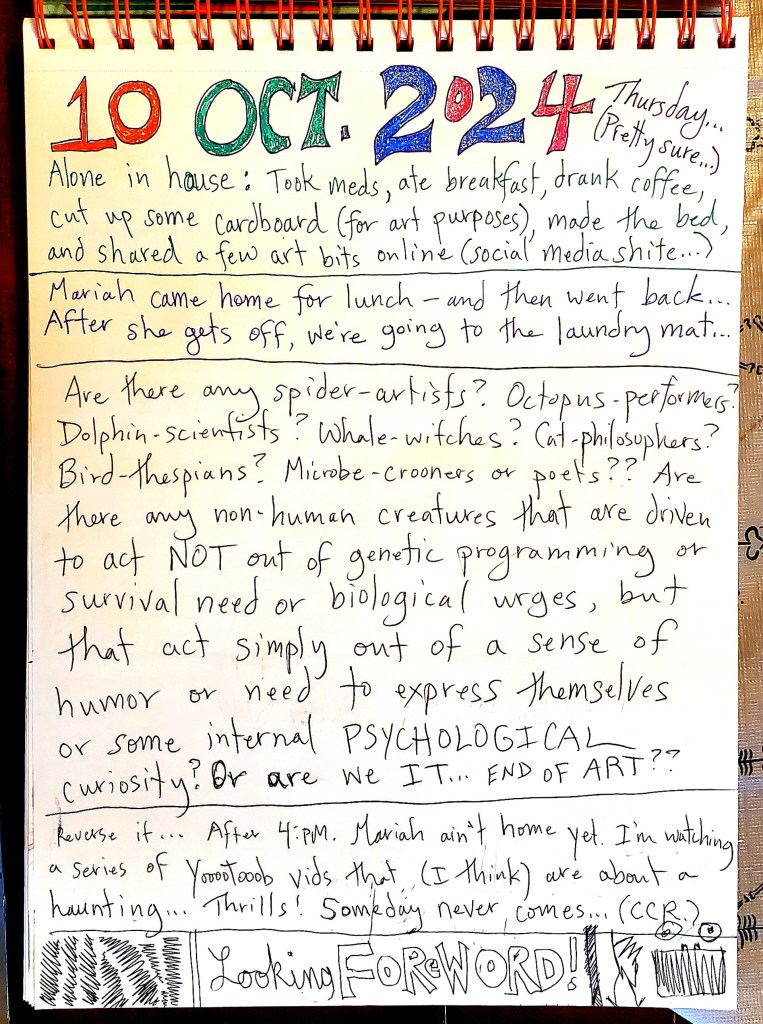 10 OCT. 2024 Thursday...
(Pretty sure...)
Alone in house: Took meds, ate breakfast, drank coffee,
cut up some cardboard (for art purposes), made the bed,
and shared a few art bits online (social media shite...)
Mariah came home for lunch - and then went back...
After she gets off, we're going to the laundry mat...
Are there any spider-artists? Octopus-performers?
Dolphin-scientists? Whale-witches? Cat-philosophers?
Bird-thespians? Microbe-crooners or poets?? Are
there any non-human creatures that are driven
to act NOT out of genetic programming or
survival need or biological urges, but
that act simply out of a sense of
humor or need to express themselves
or some internal PSYCHOLOGICAL
curiosity? Or are we IT... END OF ART??
Reverse it... After 4:PM. Mariah ain't home yet. I'm watching
a series of YooooTooob vids that (I think) are about a
haunting... Thrills! Someday never comes... (CCR.)
Looking FOREWORD!